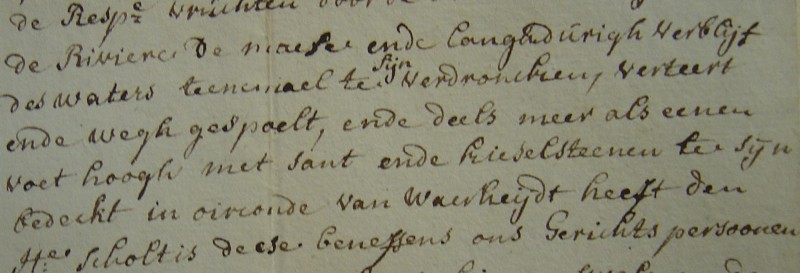 de Resp.e vruchten door de
de Riviere De maese ende langhdurigh verblijf
des waters teenemael te sijn verdroncken, verteert
ende wegh gespoelt, ende deels meer als eenen
voet hoogh met sant ende kieselsteenen te sijn
bedeckt in oirconde van waerheijdt heeft den
H.e scholtis deese beneffens ons Gerichts persoonen